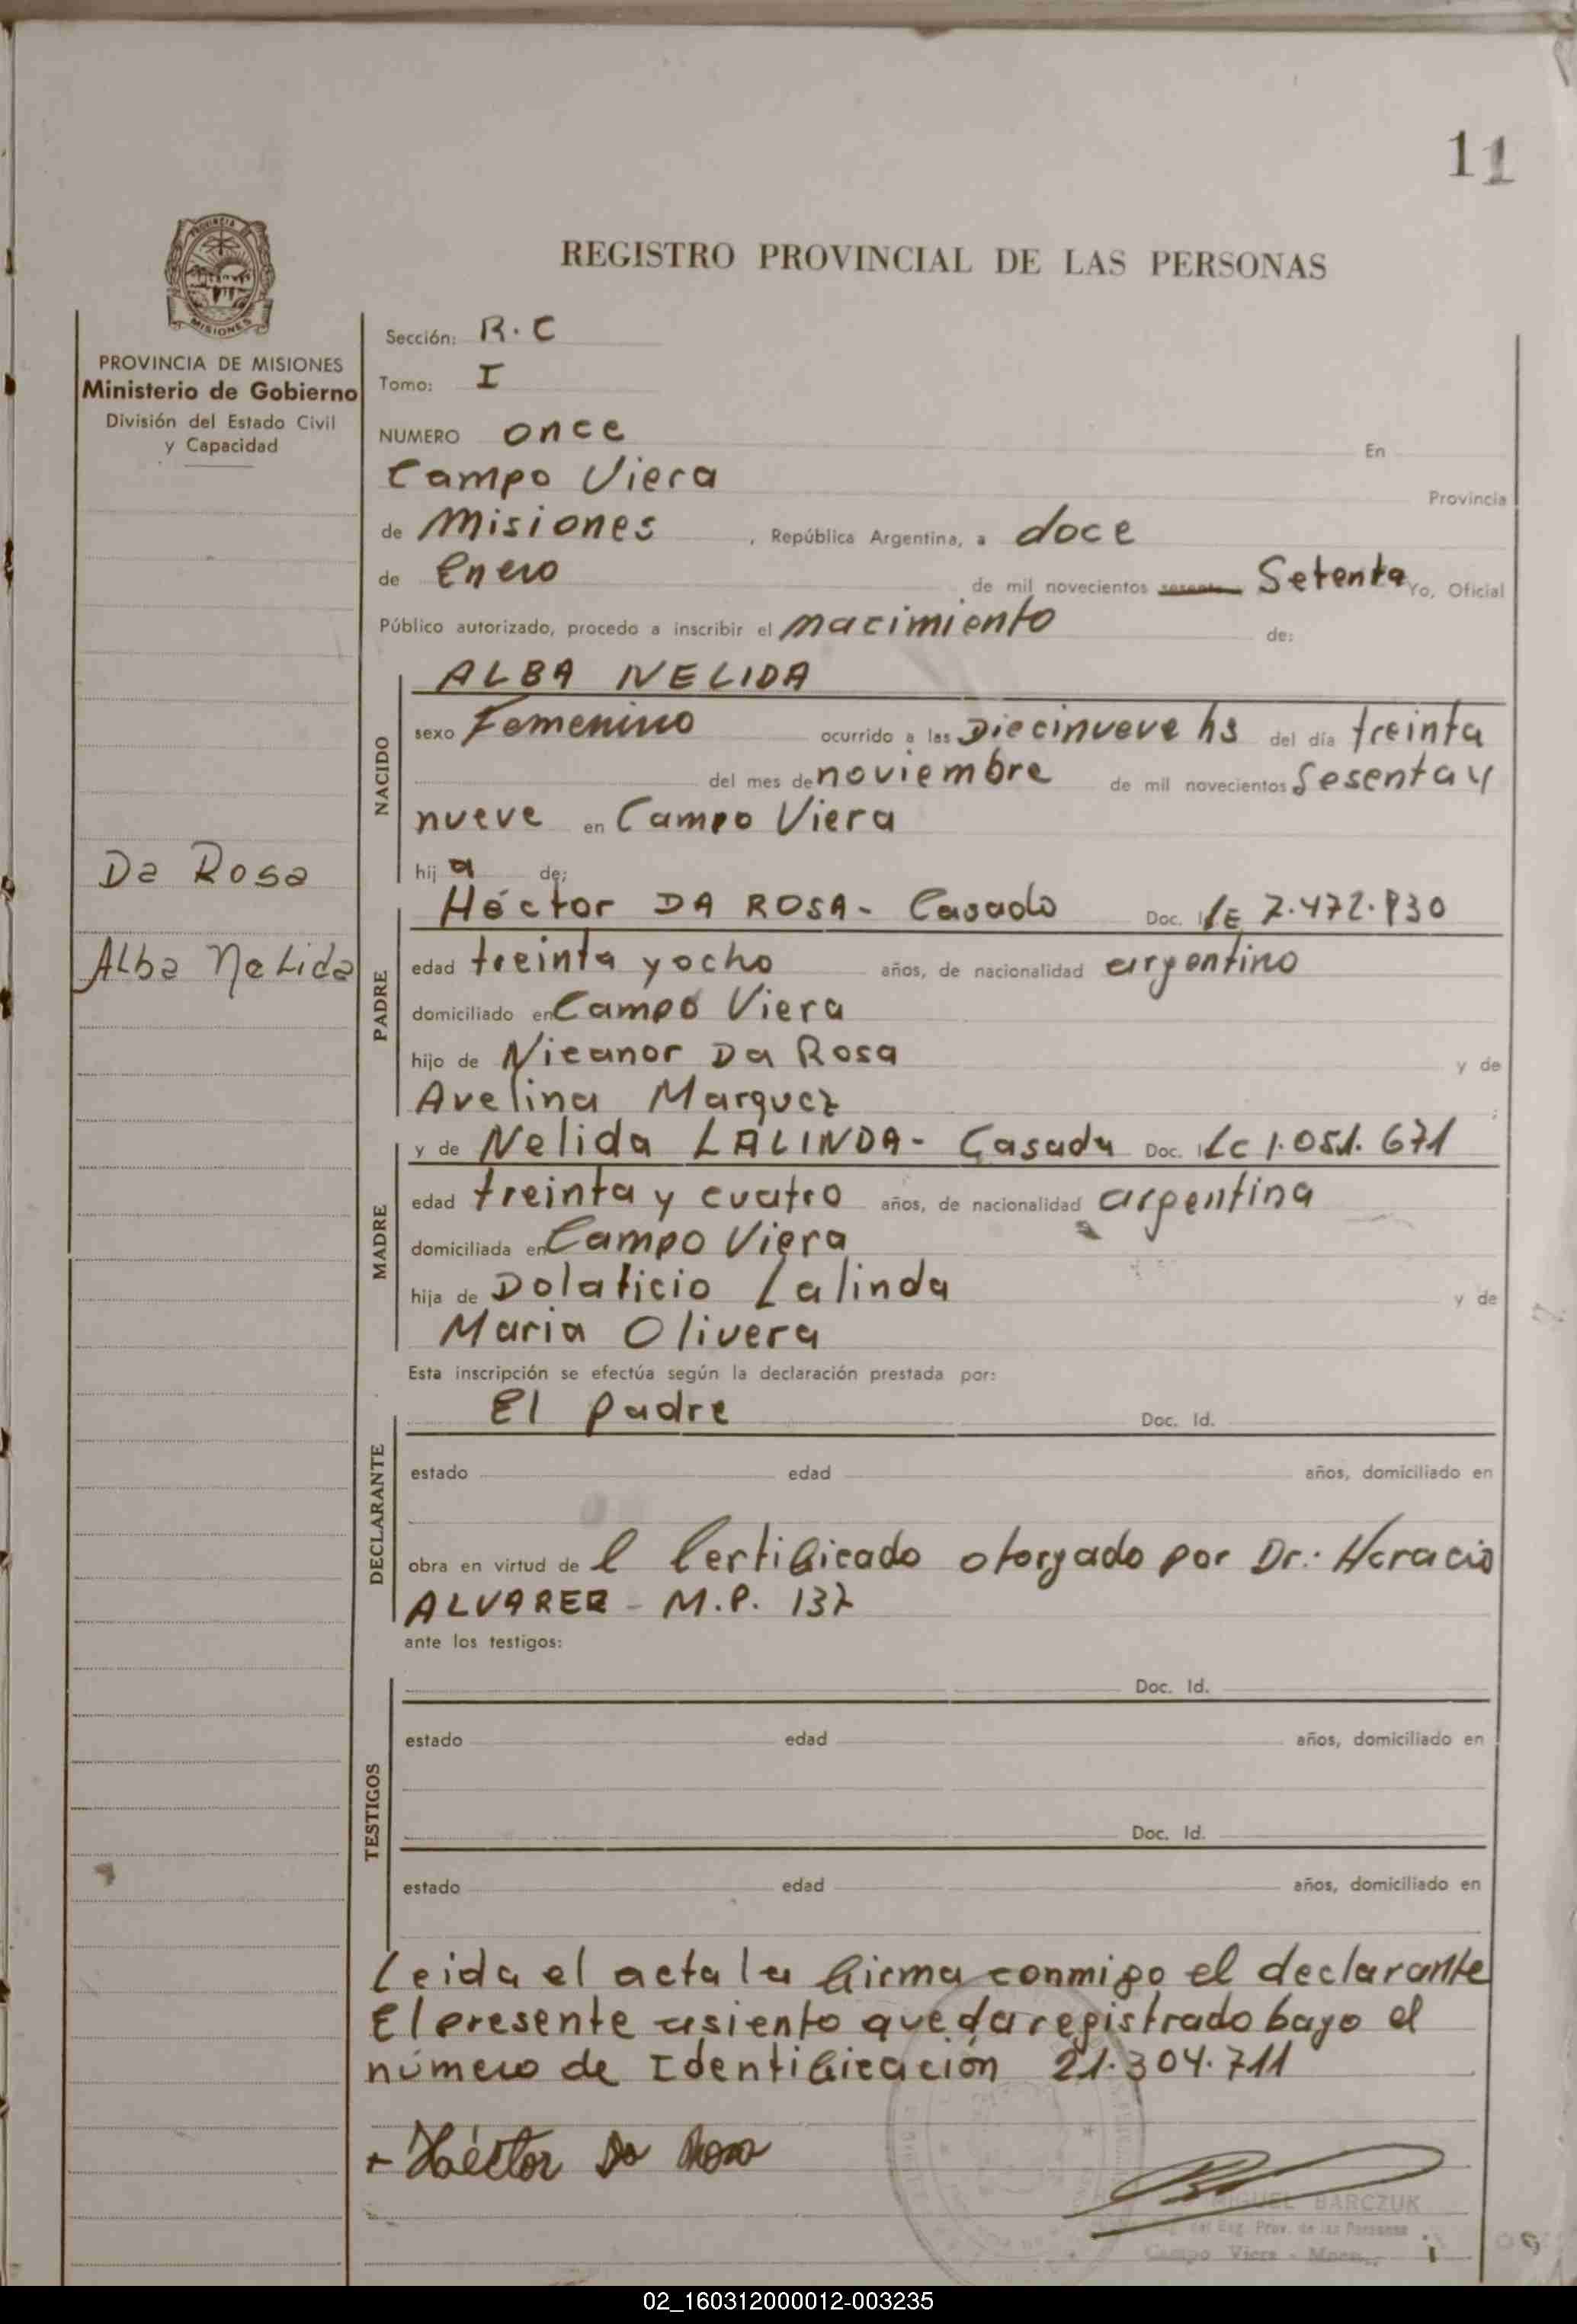 11
REGISTRO PROVINCIAL DE LAS PERSONAS
PROVINCIA DE
MISIONES
PROVINCIA DE MISIONES
Ministerio de Gobierno
División del Estado Civil
y Capacidad
Da Rosa
Alba Nelida
Sección: R.C
Tomo: I
NUMERO once En
Campo Viera Provincia
de Misiones, República Argentina, a doce
de Enero de mil novecientos sesenta Setenta Yo, Oficial
Público autorizado, procedo a inscribir el nacimiento de:
NACIDO
ALBA NELIDA
sexo Femenino ocurrido a las Diecinueve hs del día treinta
del mes de noviembre de mil novecientos Sesenta y
nueve en Campo Viera
hij a de:
PADRE
Héctor DA ROSA - Casado Doc. I LE 7.472.930
edad treinta y ocho años, de nacionalidad argentino
domiciliado en Campo Viera
hijo de Nicanor Da Rosa y de
Avelina Marquez ;
MADRE
y de Nelida LALINDA - Casada Doc. I LC 1.051.671
edad treinta y cuatro años, de nacionalidad argentina
domiciliada en Campo Viera
hija de Dolaticio Lalinda y de
Maria Olivera
Esta inscripción se efectúa según la declaración prestada por:
DECLARANTE
El padre Doc. Id.
estado edad años, domiciliado en
obra en virtud de l Certificado otorgado por Dr.: Horacio
ALVAREZ - M.P. 137
ante los testigos:
TESTIGOS
Doc. Id.
estado edad años, domiciliado en
Doc. Id.
estado edad años, domiciliado en
Leida el acta la firma conmigo el declarante
El presente asiento queda registrado bajo el
número de Identificación 21.304.711
Héctor Da Rosa
MIGUEL BARCZUK
del Reg. Prov. de las Personas
Campo Viera - Mnes.
02_160312000012-003235